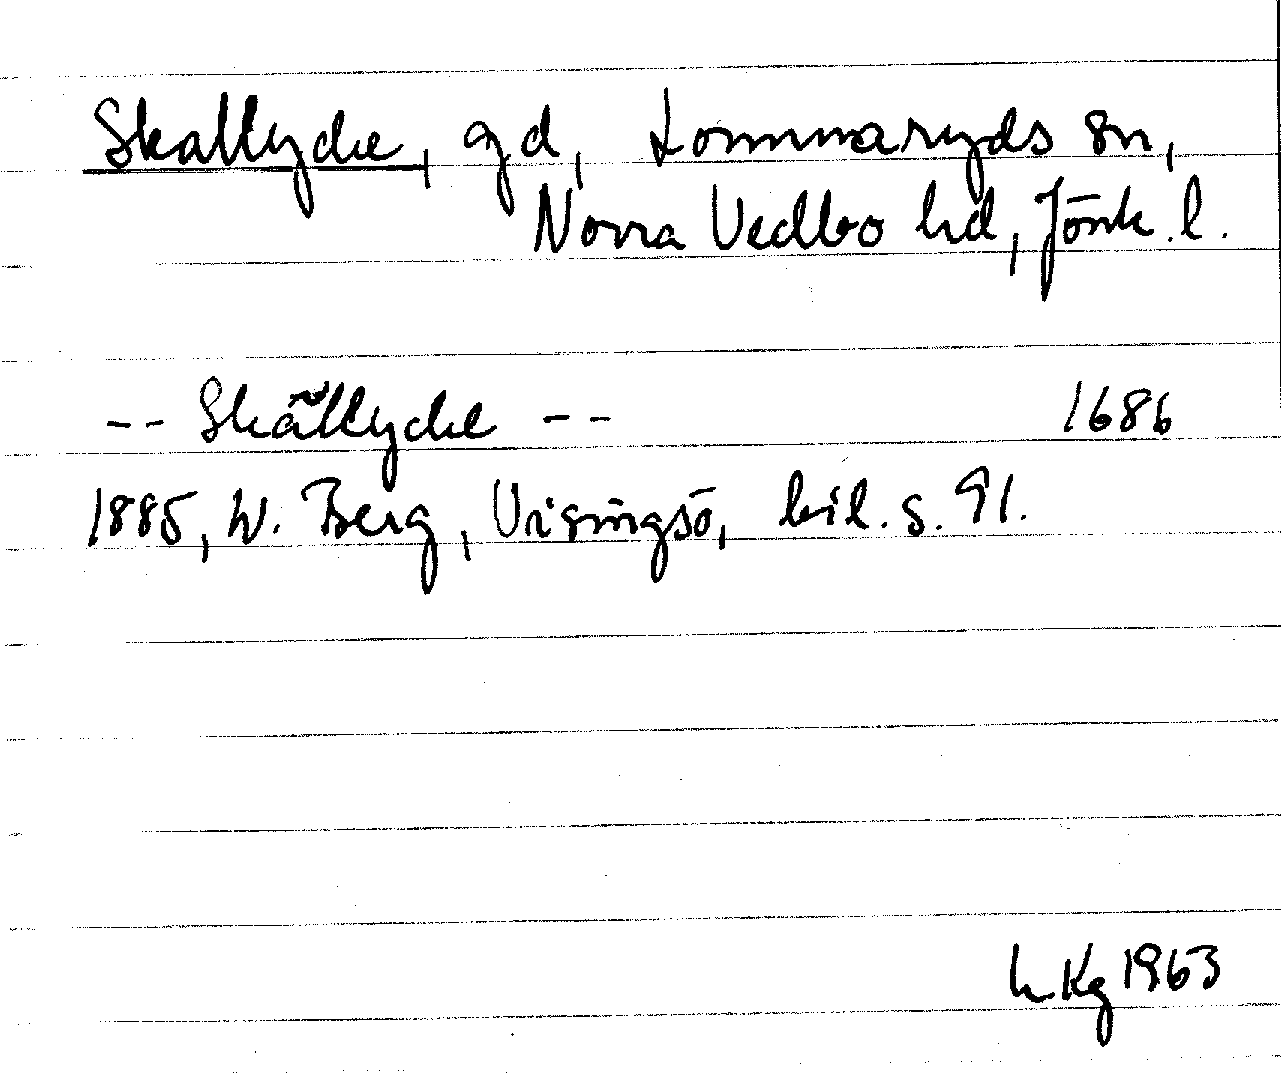 Skallycke, gd, Lommaryds sn,
Norra Vedbo hd, Jönk. l.
-- Skållycke -- 1686
1885, W. Berg, Visingsö, bil. s. 91.
h. Kg 1963